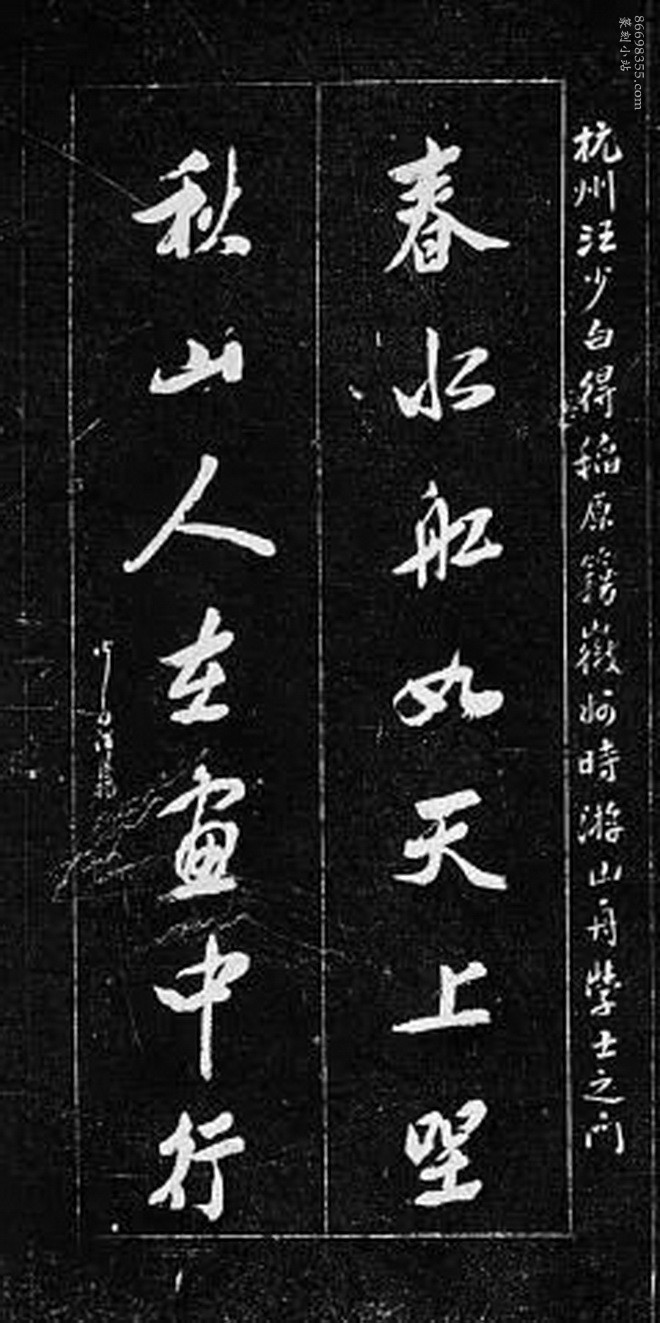 杭州汪少白得稻原籍嶽時游山舟學士之門
春水船如天上坐
秋山人在畫中行
86698355.com
篆刻小站